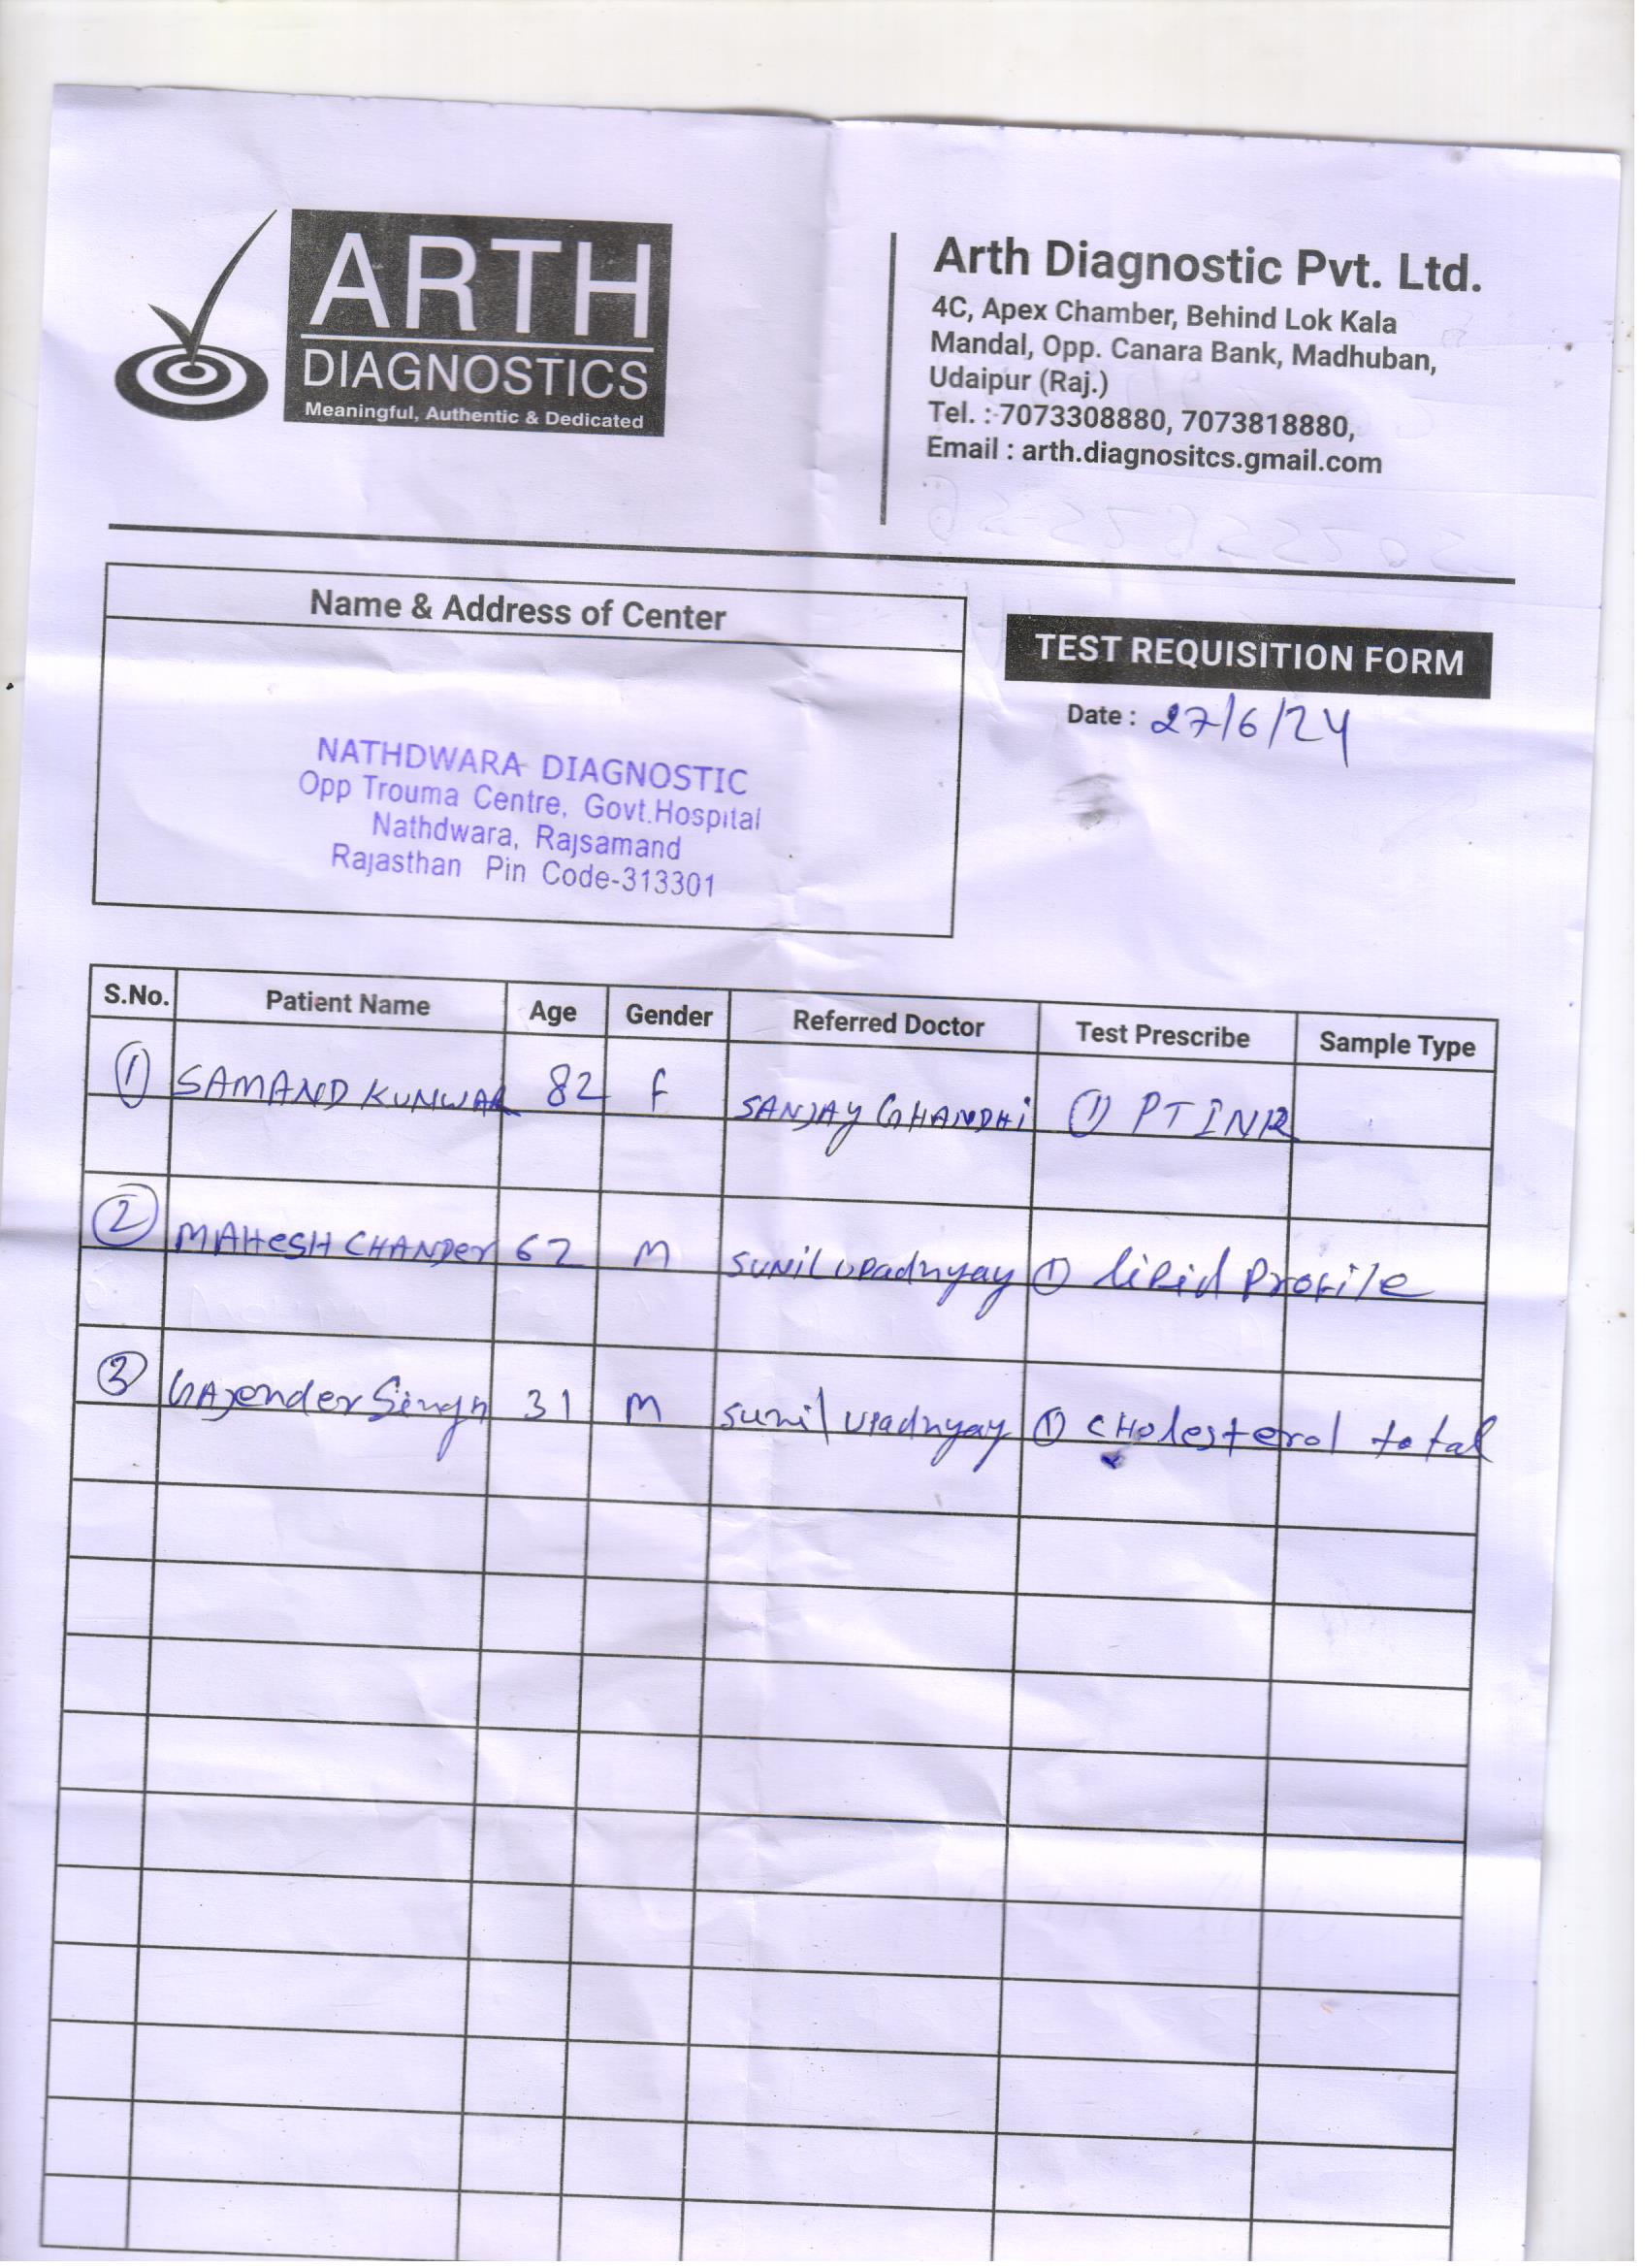 ARTH
DIAGNOSTICS
Meaningful, Authentic & Dedicated
Arth Diagnostic Pvt. Ltd.
4C, Apex Chamber, Behind Lok Kala
Mandal, Opp. Canara Bank, Madhuban,
Udaipur (Raj.)
Tel. :-7073308880, 7073818880,
Email : arth.diagnositcs.gmail.com
Name & Address of Center
NATHDWARA DIAGNOSTIC
Opp Trouma Centre, Govt.Hospital
Nathdwara, Rajsamand
Rajasthan Pin Code-313301
TEST REQUISITION FORM
Date : 27/6/24
S.No. Patient Name Age Gender Referred Doctor Test Prescribe Sample Type
1 SAMAND KUNWAR 82 F SANJAY GHANDHi 1 PT INR
2 MAHESH CHANDer 62 M SUNIL UPadhyay 1 lipid Profile
3 GAjender Singh 31 M Sunil Upadhyay 1 CHolesterol total